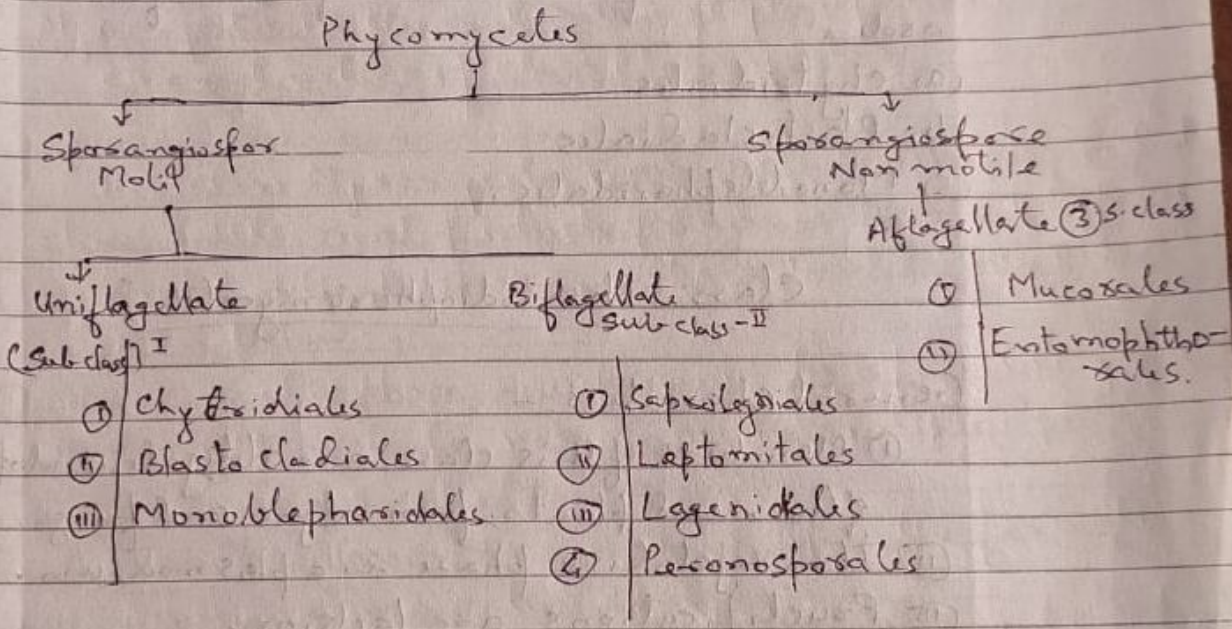 Phycomycetes
Sporangiospor
Motil
Sporangiospore
Non motile
Aflagellate ③ s.class
Uniflagellate
(Sub class) I
Biflagellate
Sub class-II
① Mucorales
② Entomophtho-
rales.
① Chytridiales
② Blasto cladiales
③ Monoblepharidales
① Saprolegniales
② Laptomitales
③ Lagenidales
④ Peronosporales